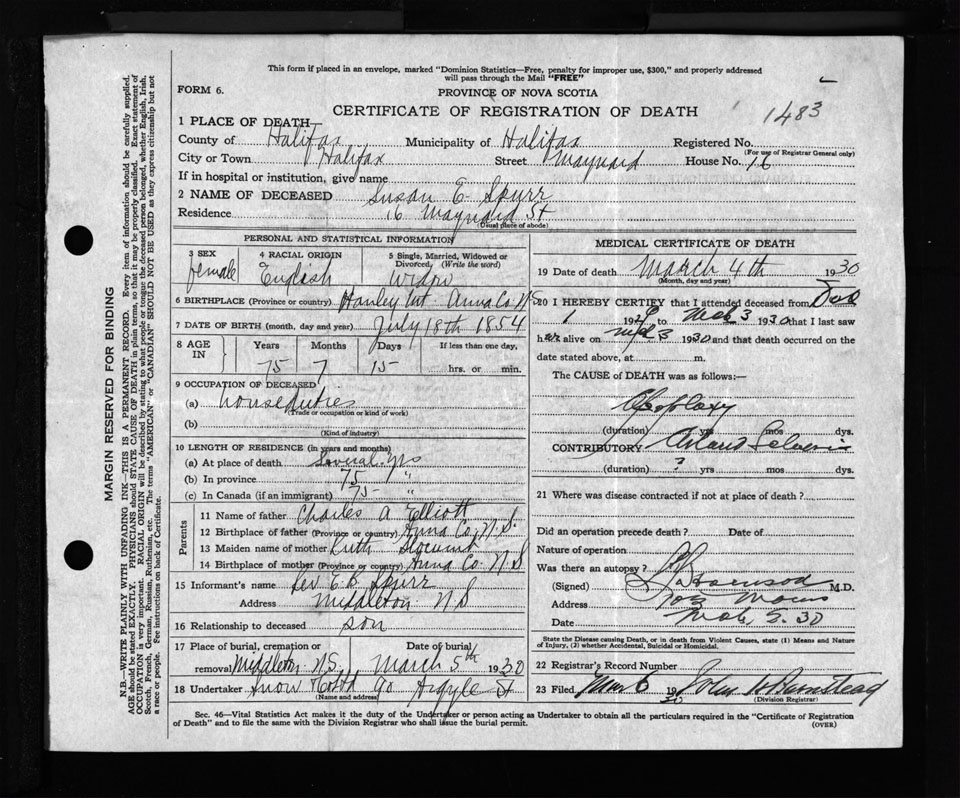 This form if placed in an envelope, marked "Dominion Statistics—Free, penalty for improper use, $300," and properly addressed
will pass through the Mail "FREE"
FORM 6.
PROVINCE OF NOVA SCOTIA
CERTIFICATE OF REGISTRATION OF DEATH
1483
1 PLACE OF DEATH
County of Halifax Municipality of Halifax Registered No.
(For use of Registrar General only)
City or Town Halifax Street Maynard House No. 16
If in hospital or institution, give name
2 NAME OF DECEASED Susan E Spurr
Residence 16 Maynard St
(Usual place of abode)
PERSONAL AND STATISTICAL INFORMATION
3 SEX 4 RACIAL ORIGIN 5 Single, Married, Widowed or
Divorced, (Write the word)
female English Widow
6 BIRTHPLACE (Province or country) Hanley Mt. Anna Co N S
7 DATE OF BIRTH (month, day and year) July 18th 1854
8 AGE IN Years Months Days If less than one day,
75 7 15 hrs. or min.
9 OCCUPATION OF DECEASED
(a) House duties
(Trade or occupation or kind of work)
(b)
(Kind of industry)
10 LENGTH OF RESIDENCE (in years and months)
(a) At place of death Several yrs
(b) In province 75 "
(c) In Canada (if an immigrant) 75 "
Parents
11 Name of father Charles A Elliott
12 Birthplace of father (Province or country) Anna Co. N. S.
13 Maiden name of mother Ruth Slocumb
14 Birthplace of mother (Province or country) Anna Co. N. S
15 Informant's name Rev E. B. Spurr
Address Middleton N S
16 Relationship to deceased son
17 Place of burial, cremation or Date of burial
removal Middleton N S. March 5th 1930
18 Undertaker Snow 90 Argyle St
(Name and address)
MEDICAL CERTIFICATE OF DEATH
19 Date of death March 4th 1930
(Month, day and year)
20 I HEREBY CERTIFY that I attended deceased from Dec
1 1929 to Mch 3 1930 that I last saw
her alive on Mch 3 1930 and that death occurred on the
date stated above, at m.
The CAUSE of DEATH was as follows:—
Apoplexy
(duration) yrs mos dys.
CONTRIBUTORY
(duration) ? yrs mos dys.
21 Where was disease contracted if not at place of death?
Did an operation precede death? Date of
Nature of operation
Was there an autopsy?
(Signed) M.D.
Address
Date Mch 5. 30
State the Disease causing Death, or in death from Violent Causes, state (1) Means and Nature
of Injury, (2) whether Accidental, Suicidal or Homicidal.
22 Registrar's Record Number
23 Filed Mar 6 1930 John
(Division Registrar)
Sec. 46—Vital Statistics Act makes it the duty of the Undertaker or person acting as Undertaker to obtain all the particulars required in the "Certificate of Registration
of Death" and to file the same with the Division Registrar who shall issue the burial permit.
(OVER)
MARGIN RESERVED FOR BINDING
N.B.—WRITE PLAINLY WITH UNFADING INK—THIS IS A PERMANENT RECORD. Every item of information should be carefully supplied.
AGE should be stated EXACTLY. PHYSICIANS should STATE CAUSE OF DEATH in plain terms, so that it may be properly classified. Exact statement of
OCCUPATION is very important. RACIAL ORIGIN will be described by stating to what people or tongue the deceased person belonged, whether English, Irish,
Scotch, French, German, Russian, Ruthenian, etc. The terms "AMERICAN" or "CANADIAN" SHOULD NOT BE USED as they express citizenship but not
a race or people. See instructions on back of Certificate.